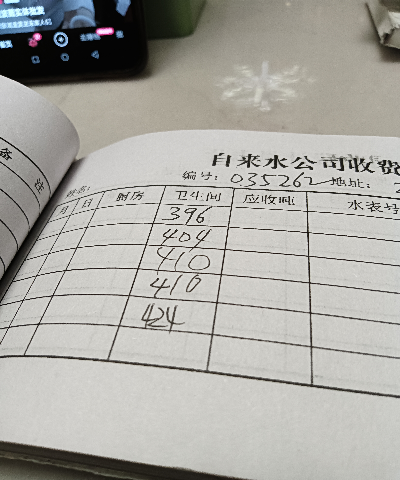 备注
自来水公司收费
编号: 035262 地址:
姓名:
月 日 厨房 卫生间 应收吨 水表号
396
404
410
410
424